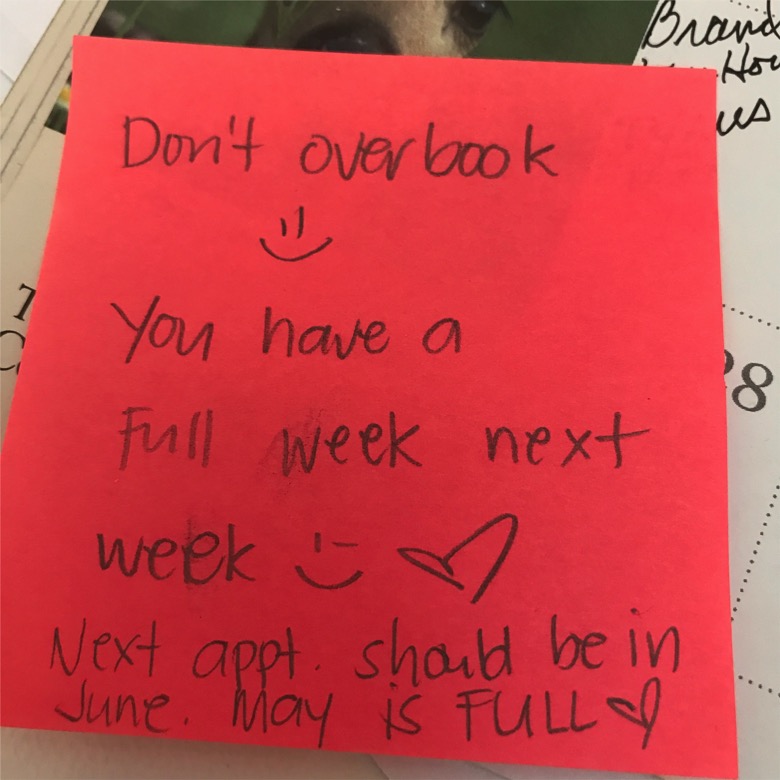 Don't overbook
You have a
Full week next
week
Next appt. should be in
June. May is FULL
28